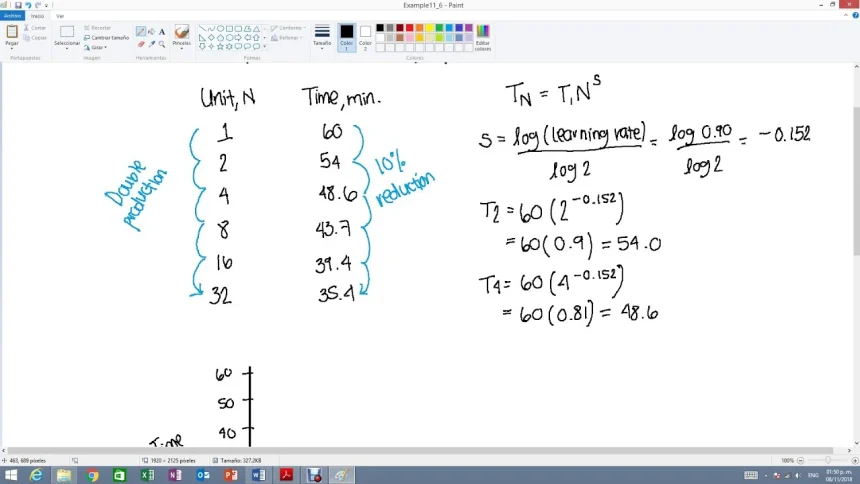 Example11_6 - Paint
Archivo Inicio Ver
Pegar
Cortar
Copiar
Portapapeles
Seleccionar
Recortar
Cambiar tamaño
Girar
Imagen
Herramientas
Pinceles
Formas
Contorno
Rellenar
Tamaño
Color 1
Color 2
Colores
Editar colores
Unit, N Time, min.
1 60
2 54
4 48.6
8 43.7
16 39.4
32 35.4
Double production
10% reduction
T_N = T_1 N^S
S = log(learning rate) / log 2 = log 0.90 / log 2 = -0.152
T2 = 60(2^-0.152)
= 60(0.9) = 54.0
T4 = 60(4^-0.152)
= 60(0.81) = 48.6
60
50
40
Time
463, 689 píxeles 1920 × 2125 píxeles Tamaño: 327,2KB 100%
01:50 p. m.
08/11/2018